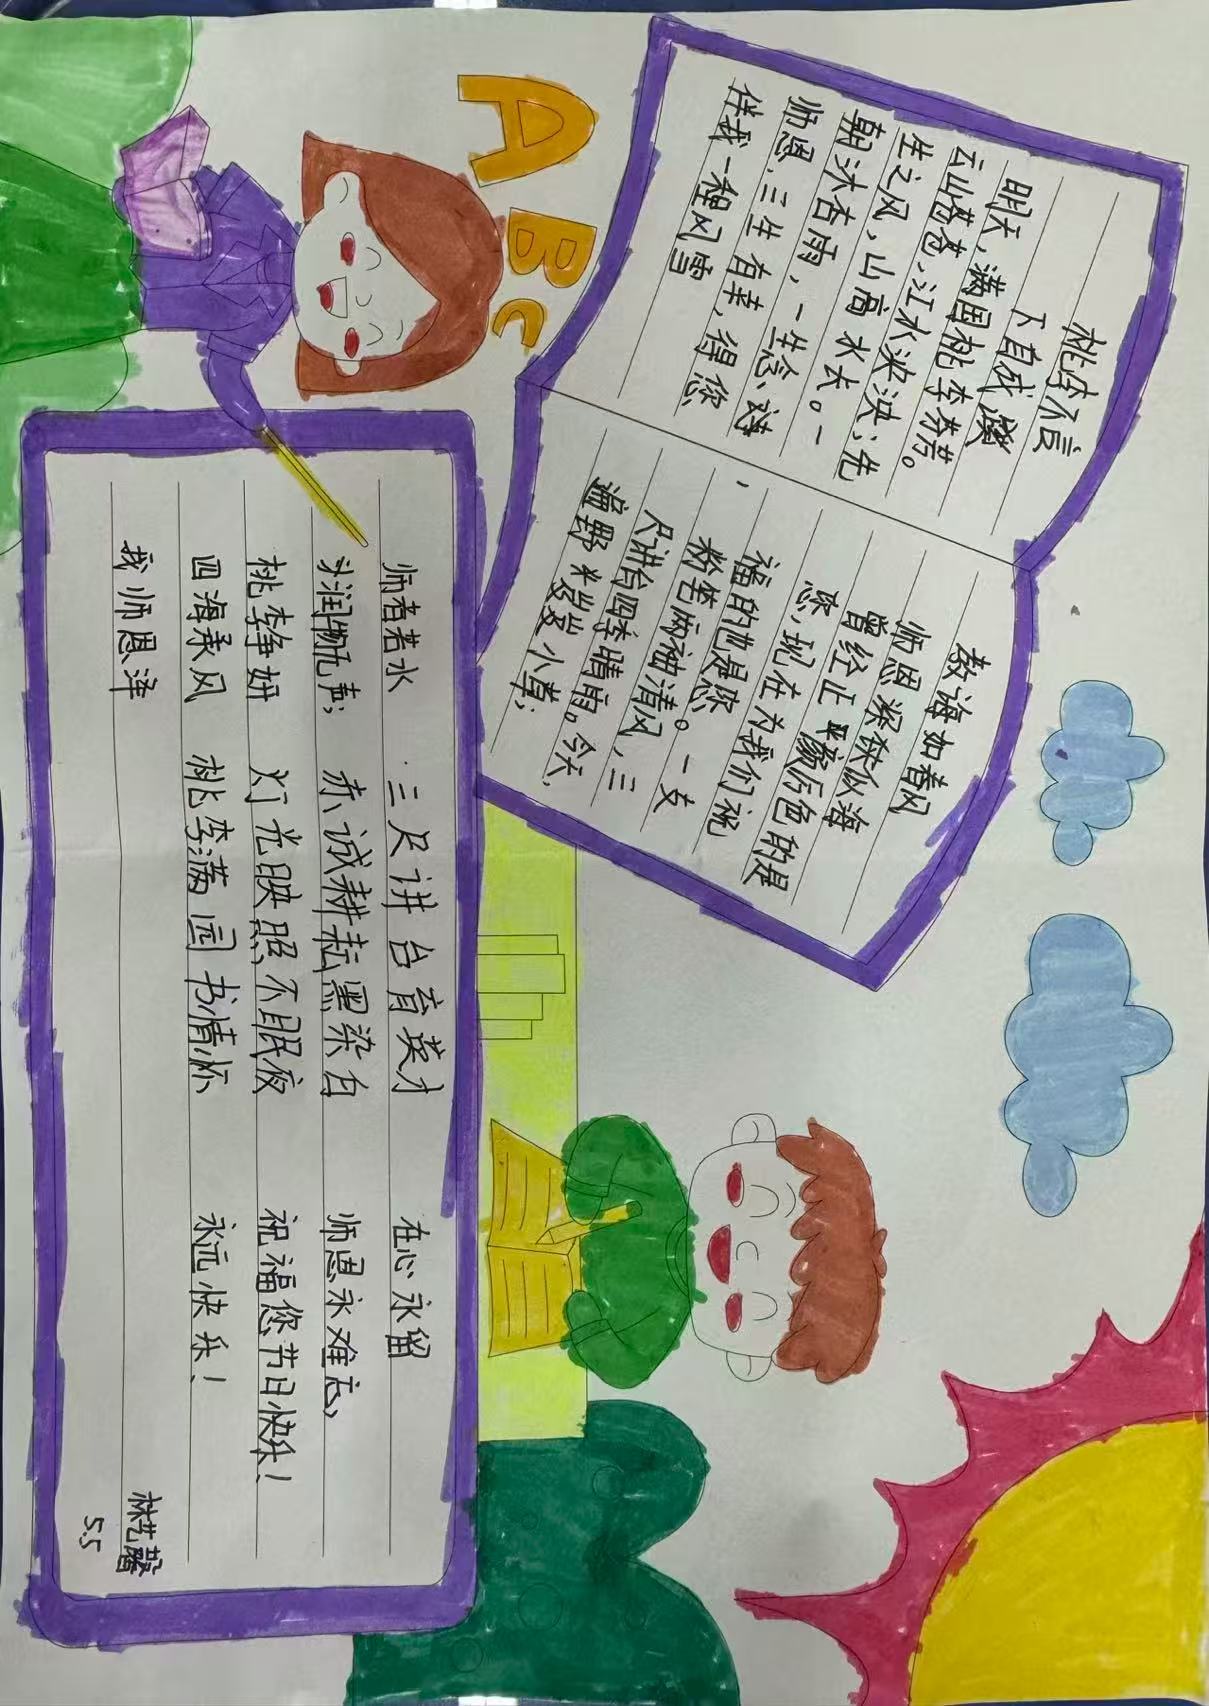 ABC
桃李不言
下自成蹊
明天，满园桃李芬芳。
云山苍苍，江水泱泱；先
生之风，山高水长。一
朝沐杏雨，一生念
师恩．三生有幸，得您
伴我一程风雪
教海如春风
师恩深似海
曾经正严厉色的是
您，现在为我们祝
福的也是您
，粉笔两袖清风，三
尺讲台四季晴雨。今天，
遍野米小草；
师者若水 三尺讲台育英才 在心永留
润物无声； 赤诚耕耘黑染白 师恩永难忘，
桃李争妍 灯光映照不眠夜 祝福您节日快乐！
四海承风 桃李满园书情怀 永远快乐！
我师恩泽
林艺馨
5.5